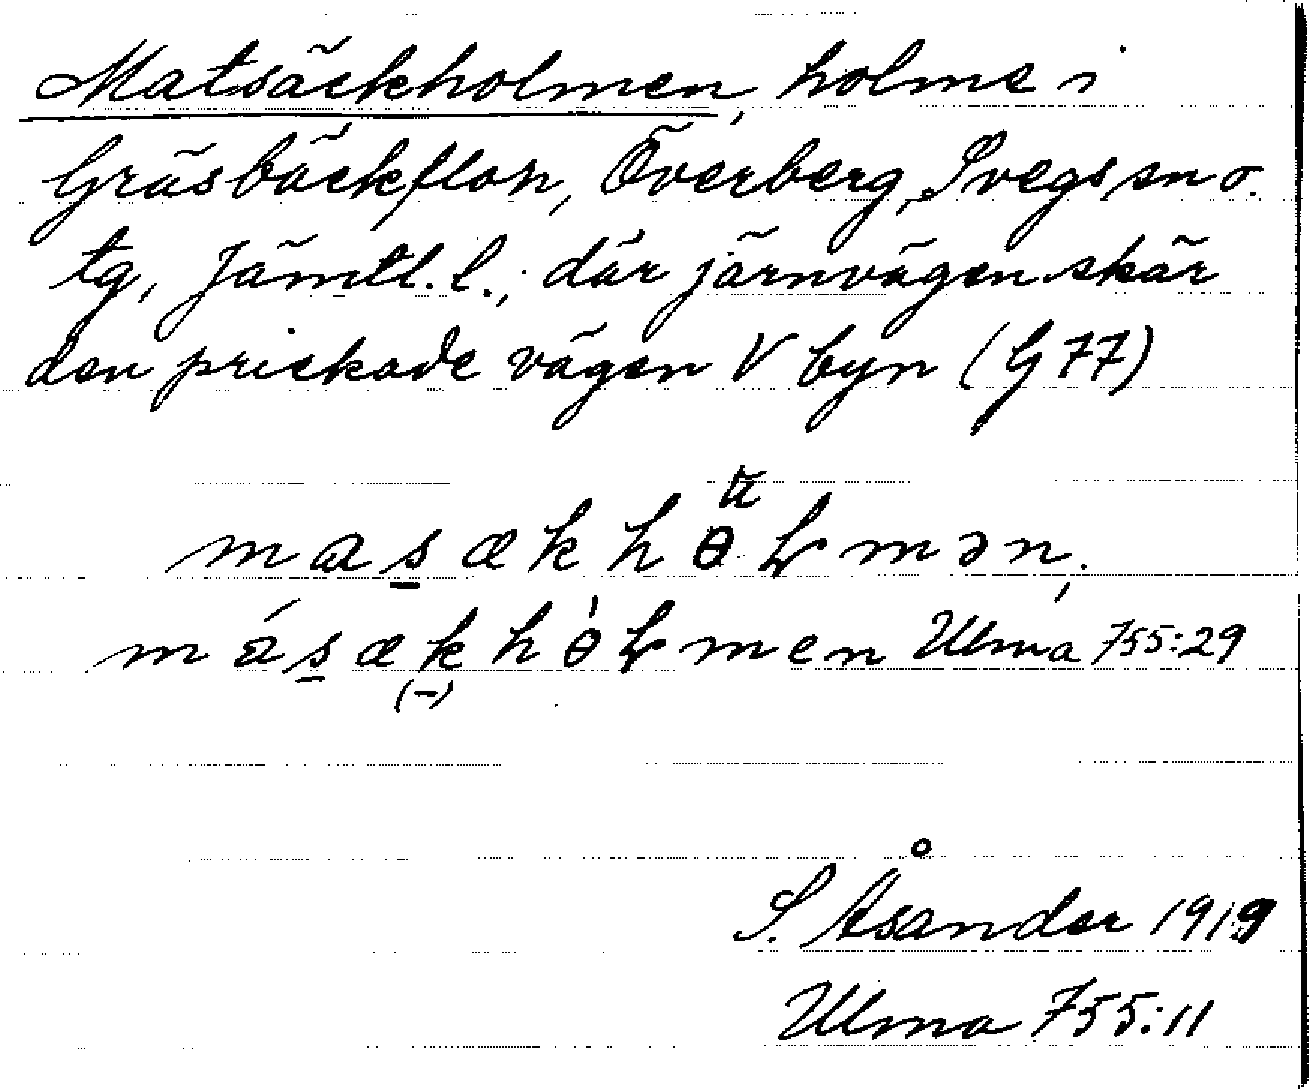 Matsäckholmen, holme i
Gräsbäckflon, Överberg, Svegs sn o.
tg, Jämtl. l.; där järnvägen skär
den prickade vägen V byn (G 77)
masækhɵɫmən.
másækhɵ̀ɫmen Ulma 755:29
S. Åsander 1919
Ulma 755:11